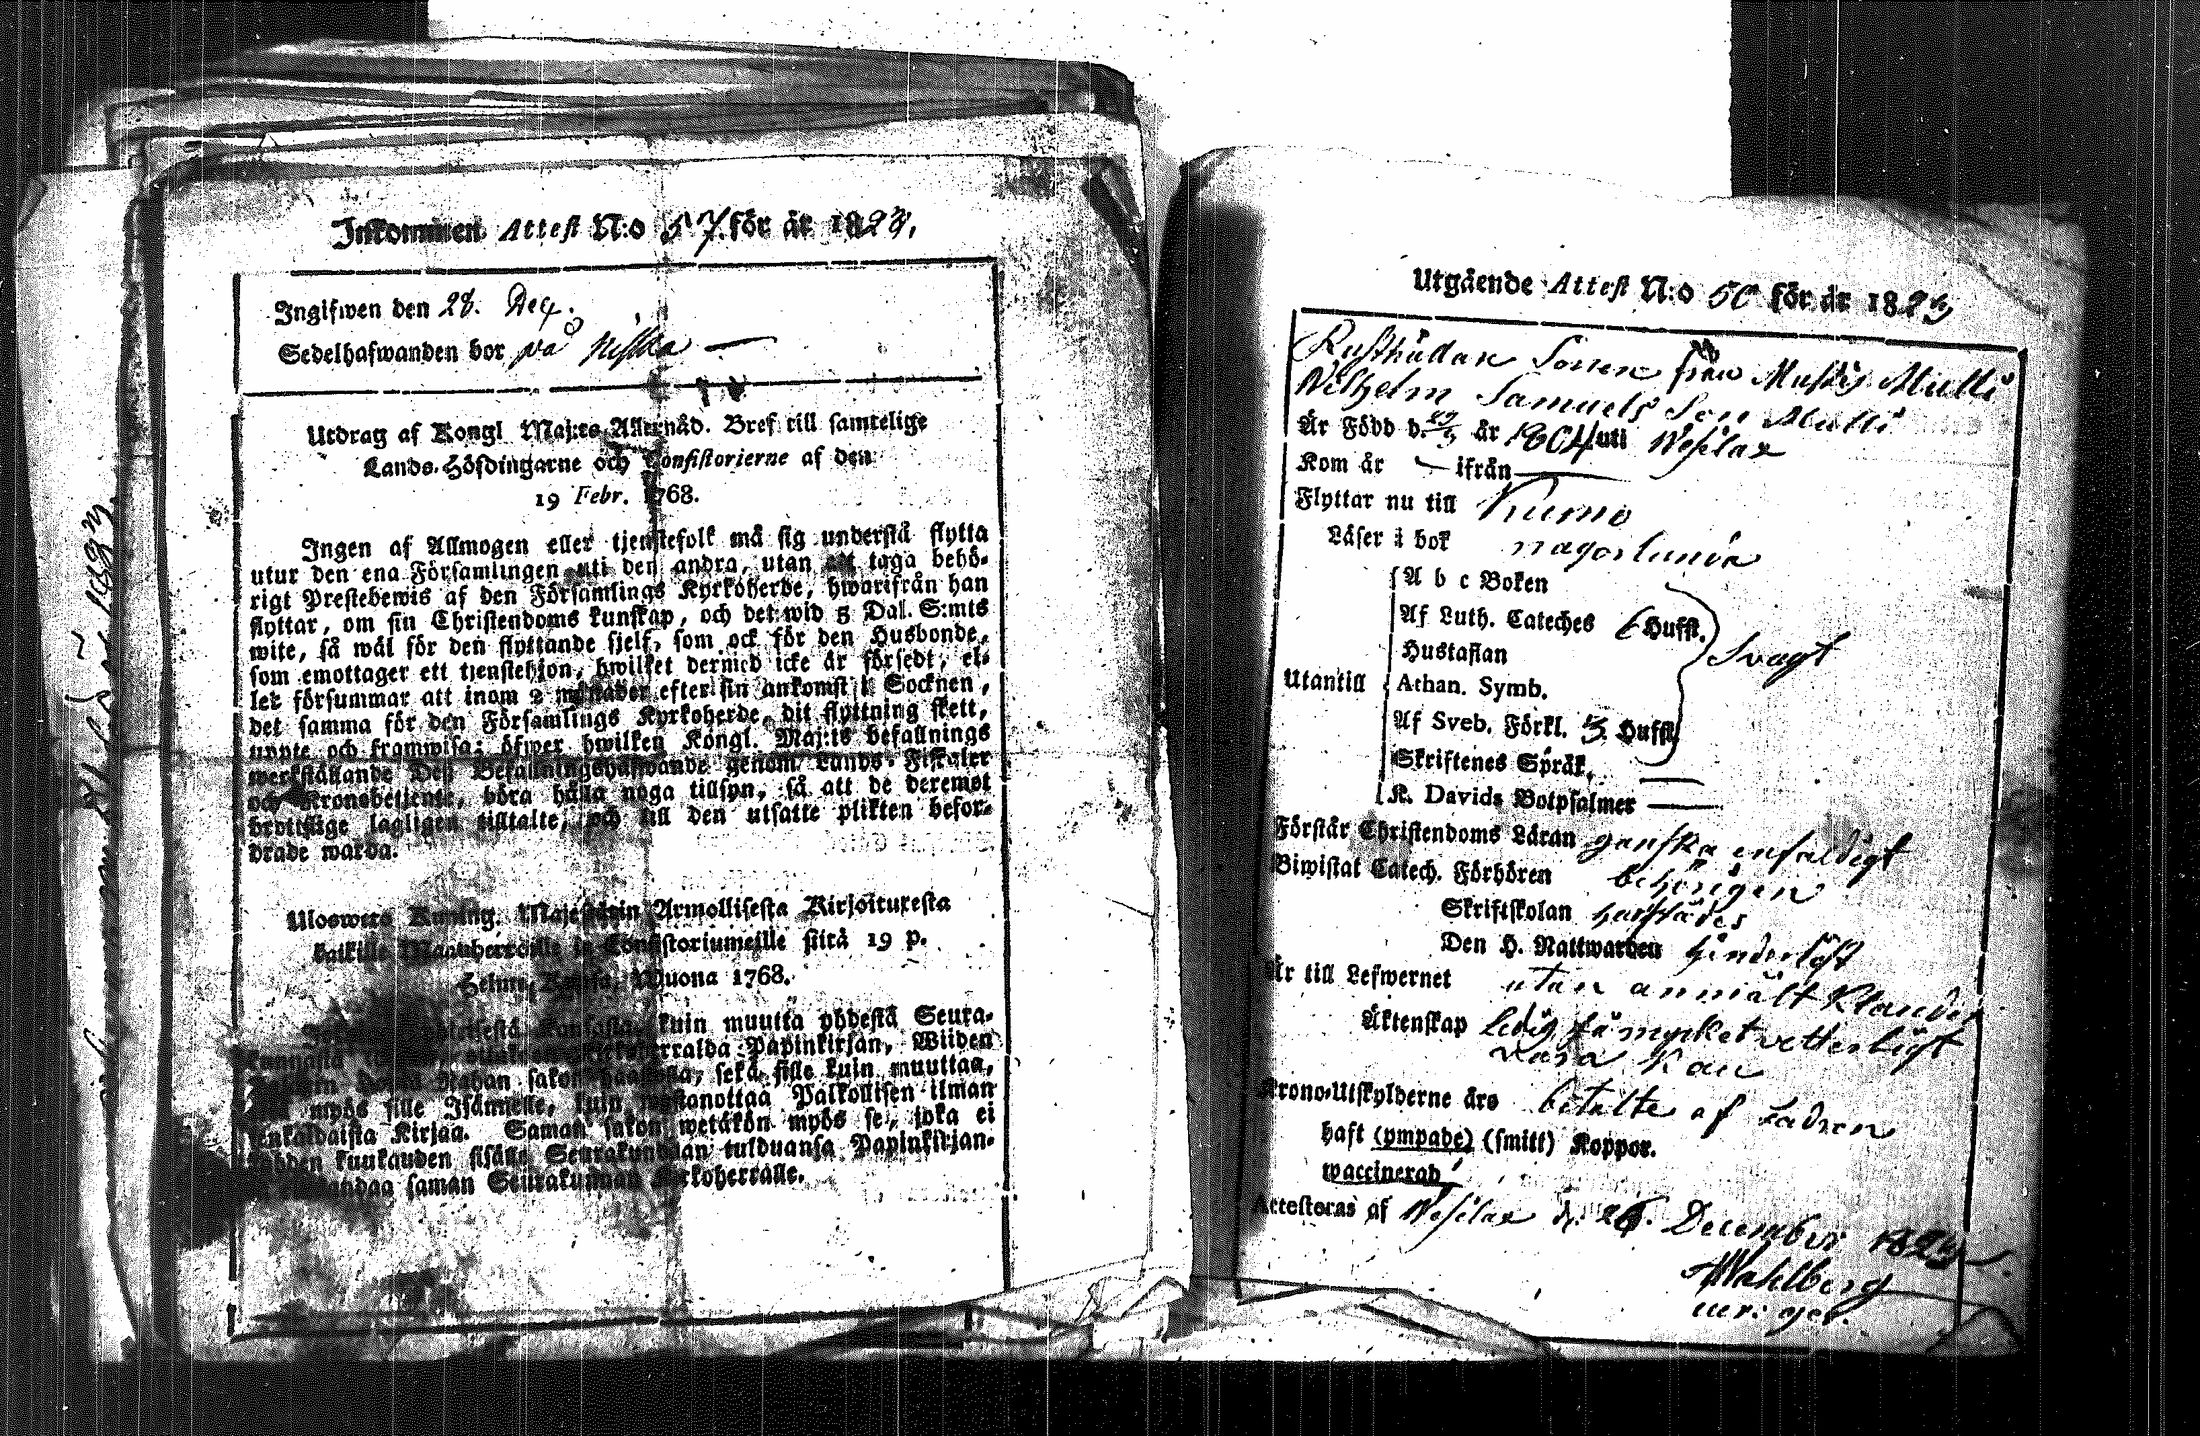 Inkommen Attest N:o 57 för år 1823.
Ingifwen den 28. Dec.
Sedelhafwanden bor på
Utdrag af Kongl Maj:ts Allernåd. Bref till samtelige
Lands-Höfdingarne och Consistorierne af den
19 Febr. 1768.
Ingen af Allmogen eller tjenstefolk må sig understå flytta
utur den ena Församlingen uti den andra, utan att taga behö-
rigt Prestebewis af den Församlings Kyrkoherde, hwarifrån han
flyttar, om sin Christendoms kunskap, och det wid 5 Dal. S:mts
wite, så wäl för den flyttande sjelf, som ock för den Husbonde,
som emottager ett tjenstehjon, hwilket dermed icke är försedt, el-
ler försummar att inom 2 månader efter sin ankomst i Socknen,
det samma för den Församlings Kyrkoherde, dit flyttning skett,
uppte och framwisa; öfwer hwilken Kongl. Maj:ts befallnings
werkställande Deß Befallningshafwande genom Lands-Fiskaler
och Kronobetjente, böra hålla noga tillsyn, så att de deremot
brottslige lagligen tilltalte, och till den utsatte plikten befor-
drade warda.
Ulosweto Kuning. Majestätin Armollisesta Kirjoituxesta
kaikille Maanherroille ja Consistoriumeille siitä 19 p.
Helmi Kuusa, Wuona 1768.
kansasta, kuin muutta yhdestä Seura-
Papinkirjan, Wiiden
Rahan sakon haastolla, sekä sille kuin muuttaa,
myös sille Isännelle, kuin wastanottaa Palkollisen ilman
senkaldaista Kirjaa. Saman sakon wetäkön myös se, joka ei
kahden kuukauden sisälle Seurakundaan tulduansa Papinkirjan-
saman Seurakunnan Kirkoherralle.
Utgående Attest N:o 50 för år 1823
Rusthållare Sonen från Mulli
Wilhelm Samuels Son Mulli
Är Född d. 29/5 år 1804 uti Wesilax
Kom år — ifrån —
Flyttar nu till Kumo
Läser i bok någorlunda
A b c Boken
Af Luth. Cateches 6 Hufst.
Hustaflan
Svagt
Utantill Athan. Symb.
Af Sveb. Förkl. 3 Hufst.
Skriftenes Språk, —
K. Davids Botpsalmer —
Förstår Christendoms Läran ganska enfaldigt
Biwistat Catech. Förhören behörigen
Skriftskolan
Den H. Nattwarden hinderlöst
Är till Lefwernet utan anmält Klander
Äktenskap ledig så mycket vetterligt
vara kan
Krono-Utskylderne äro betalte af Fadren
haft (ympade) (smitt) Koppor.
waccinerad
Attesteras af Wesilax d. 26. December 1823
Wahlberg